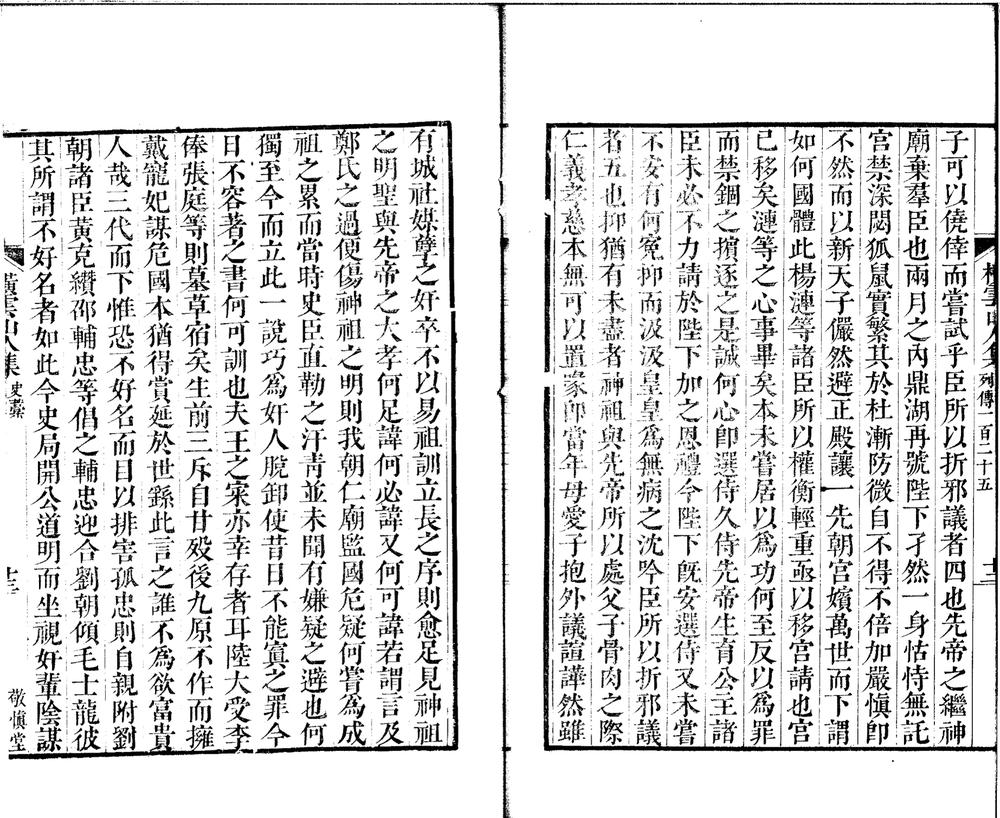 橫雲山人集 列傳一百二十五 十二
子可以僥倖而嘗試乎臣所以折邪議者四也先帝之繼神
廟棄羣臣也兩月之內鼎湖再號陛下孑然一身怙恃無託
宮禁深閟狐鼠實繁其於杜漸防微自不得不倍加嚴慎卽
不然而以新天子儼然避正殿讓一先朝宮嬪萬世而下謂
如何國體此楊漣等諸臣所以權衡輕重亟以移宮請也宮
已移矣漣等之心事畢矣本未嘗居以為功何至反以為罪
而禁錮之擯逐之是誠何心卽選侍久侍先帝生育公主諸
臣未必不力請於陛下加之恩禮今陛下旣安選侍又未嘗
不安有何冤抑而汲汲皇皇為無病之沈吟臣所以折邪議
者五也抑猶有未盡者神祖與先帝所以處父子骨肉之際
仁義孝慈本無可以置喙卽當年母愛子抱外議諠譁然雖
有城社媒孽之奸卒不以易祖訓立長之序則愈足見神祖
之明聖與先帝之大孝何足諱何必諱又何可諱若謂言及
鄭氏之過便傷神祖之明則我朝仁廟監國危疑何嘗為成
祖之累而當時史臣直勒之汗青並未聞有嫌疑之避也何
獨至今而立此一說巧為奸人脫卸使昔日不能寘之罪今
日不容著之書何可訓也夫王之寀亦幸存者耳陸大受李
俸張庭等則墓草宿矣生前三斥自甘殁後九原不作而擁
戴寵妃謀危國本猶得賞延於世繇此言之誰不為欲富貴
人哉三代而下惟恐不好名而目以排害孤忠則自親附劉
朝諸臣黃克纘邵輔忠等倡之輔忠迎合劉朝傾毛士龍彼
其所謂不好名者如此今史局開公道明而坐視奸輩陰謀
橫雲山人集 史藁 十三 敬慎堂